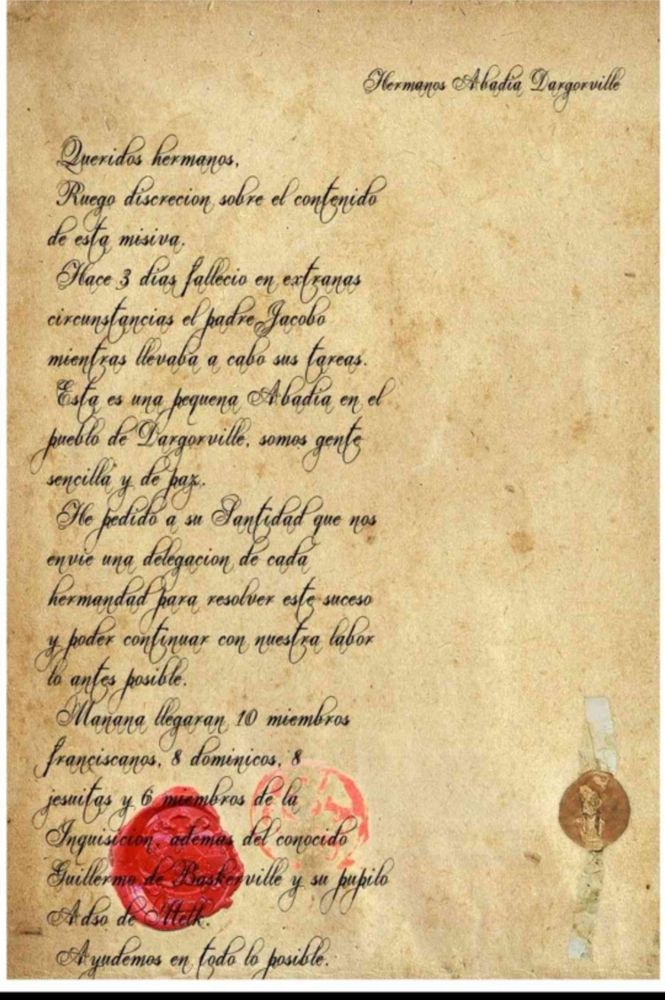 Hermanos Abadia Dargorville
Queridos hermanos,
Ruego discrecion sobre el contenido
de esta misiva.
Hace 3 dias fallecio en extranas
circunstancias el padre Jacobo
mientras llevaba a cabo sus tareas.
Esta es una pequena Abadia en el
pueblo de Dargorville, somos gente
sencilla y de paz.
He pedido a su Santidad que nos
envie una delegacion de cada
hermandad para resolver este suceso
y poder continuar con nuestra labor
lo antes posible.
Manana llegaran 10 miembros
franciscanos, 8 dominicos, 8
jesuitas y 6 miembros de la
Inquisicion, ademas del conocido
Guillermo de Baskerville y su pupilo
Adso de Melk.
Ayudemos en todo lo posible.